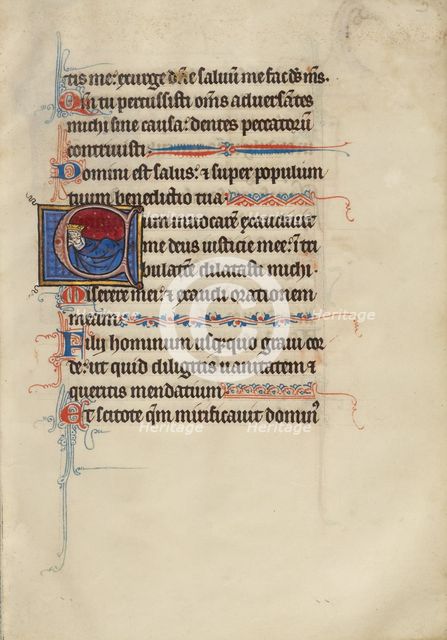 tis me: exurge dn̄e saluū me fac ds̄ ms̄.
Qm̄ tu percussisti om̄s aduersātes
michi sine causa: dentes peccatorū
contriuisti
Domini est salus: ⁊ super populum
tuum benedictio tua
Cum inuocarē exaudiuit
me deus iusticie mee: ī tri
bulatiōē dilatasti michi.
Miserere mei: ⁊ exaudi orationem
meam
Filij hominum usq: quo graui cor
de: ut quid diligitis uanitatem ⁊
queritis mendatium
Et scitote qm̄ mirificauit domin⁹
Heritage
Heritage
Heritage
Heritage